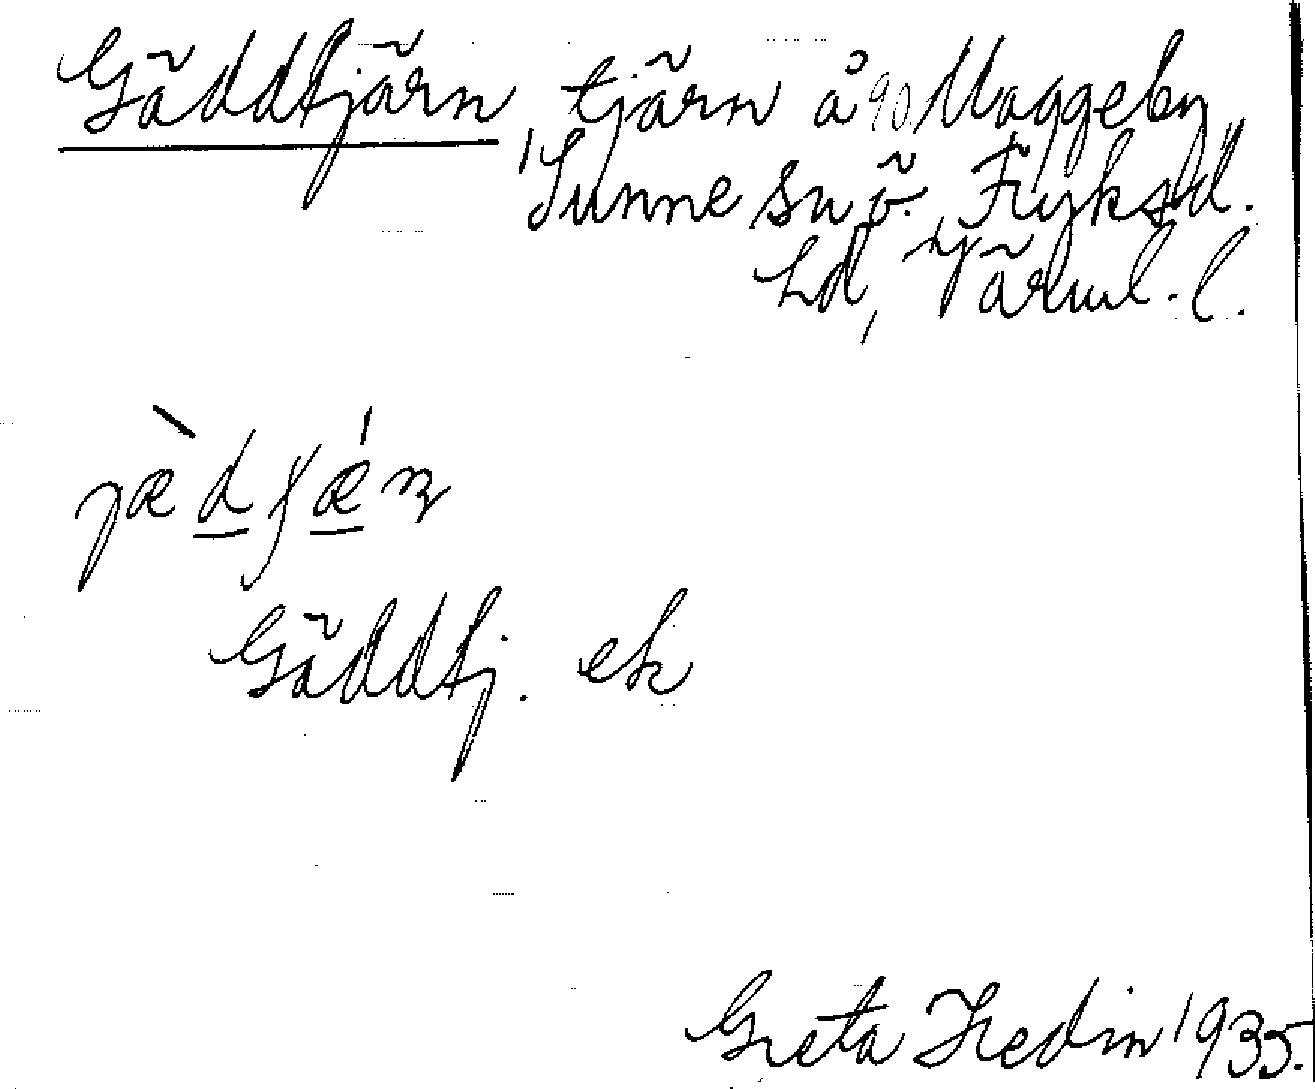 Gäddtjärn, tjärn å 90, Maggeby,
Sunne sn ö. Fryksd.
hd, Värml. l.
Gäddtj. ek
Greta Hedin 1935.